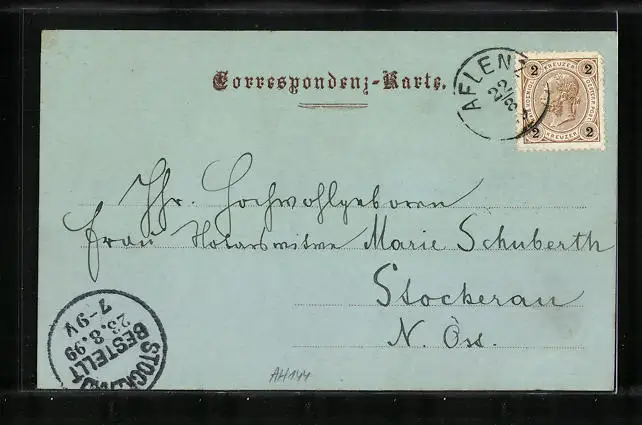 Correspondenz-Karte.
AFLENZ
22/8
2 2
KREUZER
2 2
KREUZER
Ihr. Hochwohlgeboren
Frau Notarswitwe Marie Schuberth
Stockerau
N. Öst.
STOCKERAU
BESTELLT
23.8.99
7-9V
AH144